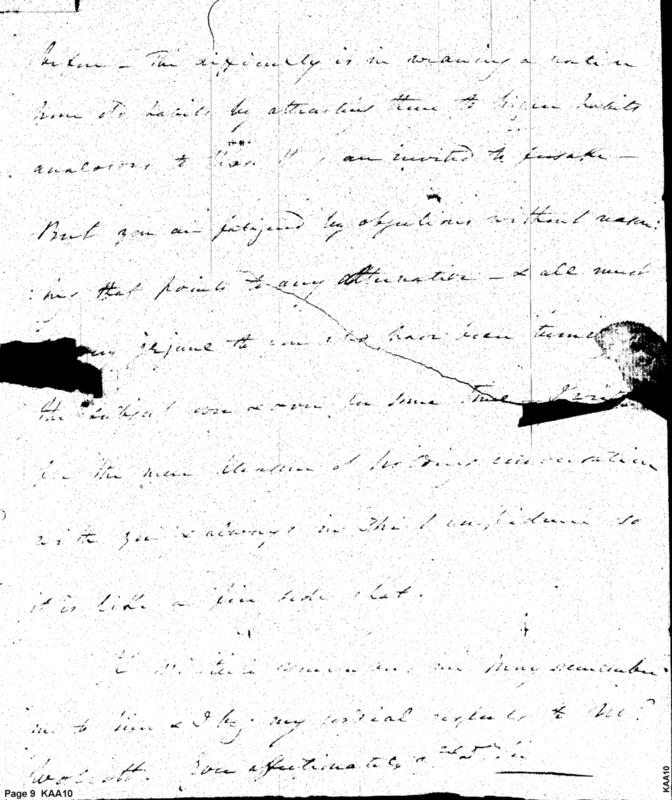 before – The difficulty is in weaning a nation
from its habits by attracting them to higher habits
analogous to those it is invited to forsake –
But you are fatigued by objections without reason:
:ing that points to any alternative – & all must
jejune to you who have been turning
the subject over & over for some time – I write
for the mere pleasure of holding conversation
with you & always in the confidence so
it is like a fire side chat.
may remember
me to him & I beg my cordial respects to Mrs
Wolcott. Your affectionately
Page 9 KAA10
KAA10